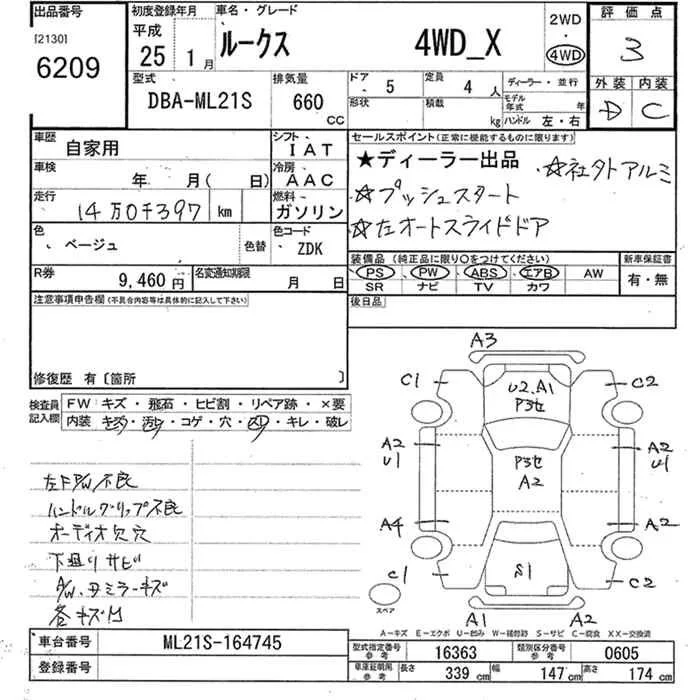 出品番号
[2130]
6209
初度登録年月
平成
25 1月
車名・グレード
ルークス 4WD_X
2WD
・
4WD
評価点
3
外装 内装
D C
型式
DBA-ML21S
排気量
660
CC
ドア 5
形状
定員 4 人
積載 kg
ディーラー・並行
モデル年式 年
ハンドル 左・右
車歴
自家用
シフト
IAT
車検
年 月( 日)
冷房
AAC
走行
14万0千397 km
燃料
ガソリン
色
ベージュ
色替
色コード
ZDK
R券
9,460円
名変通知期限
月 日
セールスポイント(正常に機能するものに限ります)
★ディーラー出品 ☆社外アルミ
☆プッシュスタート
☆左オートスライドドア
装備品(純正品に限り○をつけてください)
PS PW ABS エアB AW
SR ナビ TV カワ
新車保証書
有・無
後日品
注意事項申告欄(不具合内容等は具体的に記入して下さい)
修復歴 有〔箇所 〕
検査員記入欄
FW キズ・飛石・ヒビ割・リペア跡・×要
内装 キズ・汚れ・コゲ・穴・凹・キレ・破レ
左FP/W不良
ハンドルグリップ不良
オーディオ欠穴
下廻りサビ
A/W、ミラーキズ
各キズ凹
A3
C1 C2
U2.A1
P3セ
A2 A2
U1 U1
P3セ
A2
A4 A2
C1 C2
S1
スペア
A1 A2
A-キズ E-エクボ U-凹み W-補修跡 S-サビ C-腐食 XX-交換済
車台番号
ML21S-164745
登録番号
型式指定番号
参考
16363
類別区分番号
参考
0605
車庫証明用
参考
長さ 339 cm 幅 147 cm 高さ 174 cm